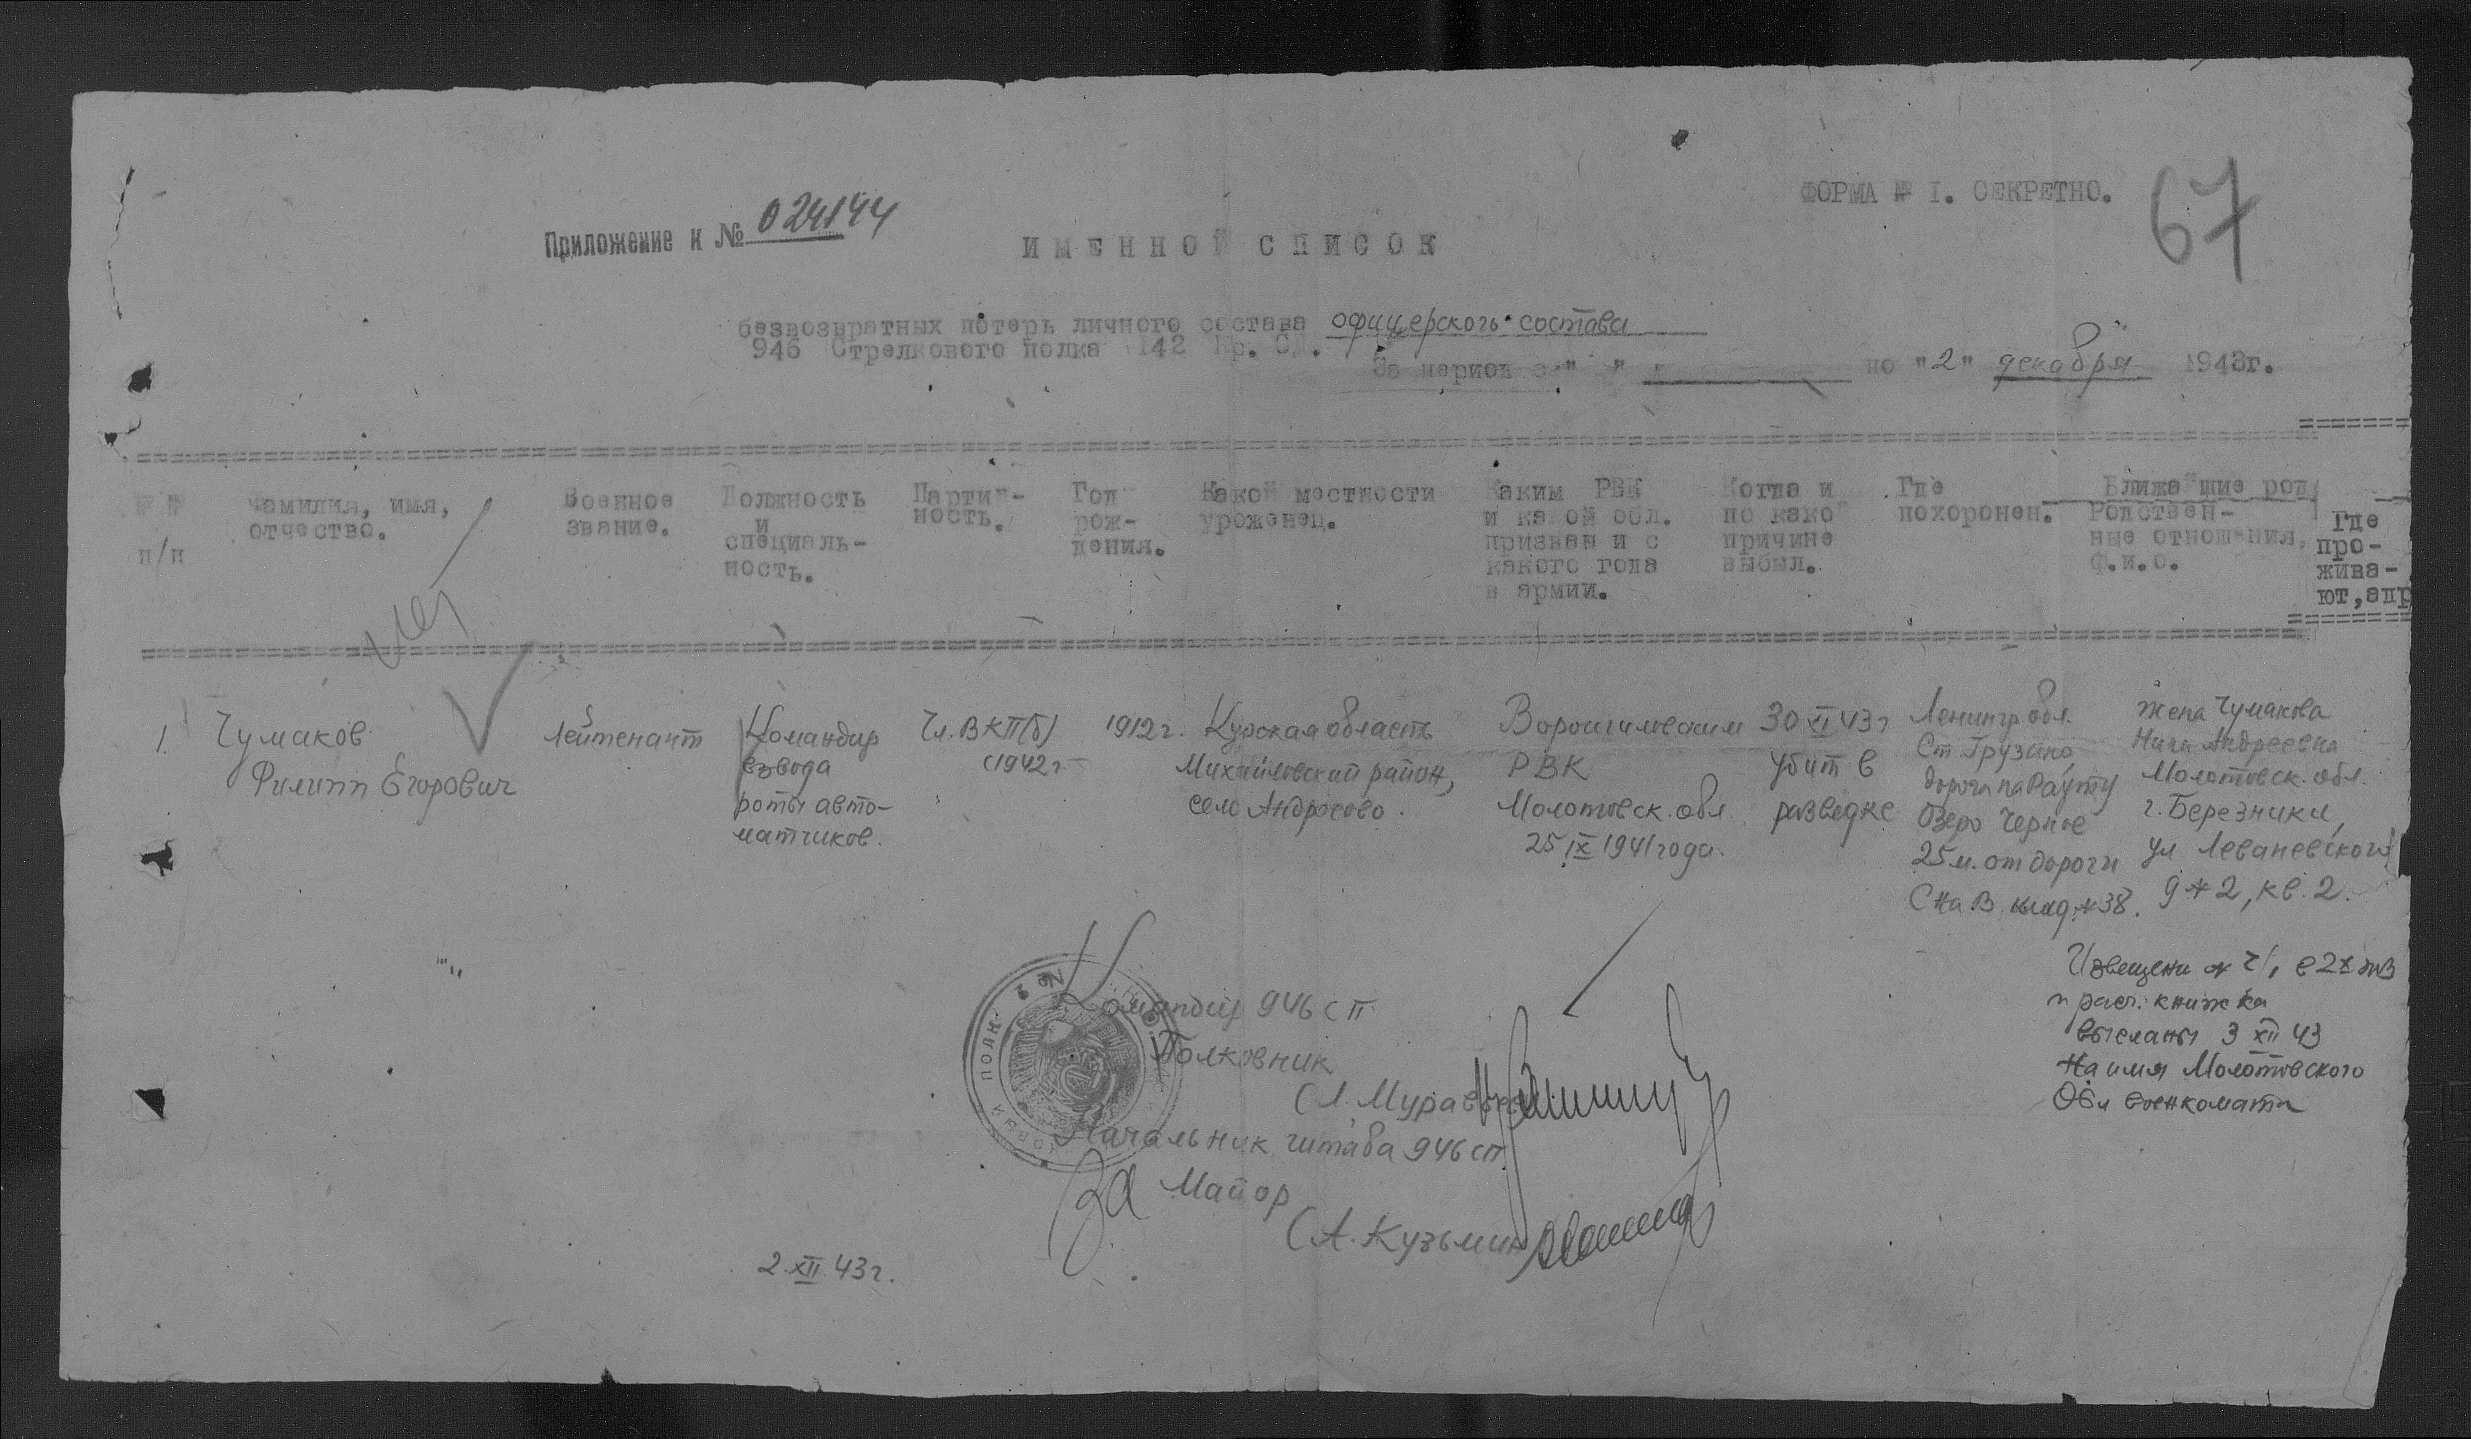 ФОРМА № I. СЕКРЕТНО.
67
Приложение к № 024144
ИМЕННОЙ СПИСОК
безвозвратных потерь личного состава офицерского состава
946 Стрелкового полка 142 Кр. СД.
За период с " " по "2" декабря 1943г.
№ № п/п
Фамилия, имя, отчество.
Военное звание.
Должность и специаль-ность.
Партий-ность.
Год рож-дения.
Какой местности уроженец.
Каким РВК и какой обл. призван и с какого года в армии.
Когда и по какой причине выбыл.
Где похоронен.
Ближайшие род
Родствен-ные отношения, ф.и.о.
Где про-жива-ют, адр
1. Чумаков Филипп Егорович
Лейтенант
Командир взвода роты авто-матчиков.
Чл. ВКП(б) с 1942 г
1912 г.
Курская область Михайловский район, село Андросово.
Ворошиловским РВК Молотовск. обл 25 IX 1941 года.
30 XI 43 г убит в разведке
Ленингр. обл. Ст Грузино дорога на Рауту Озеро Черное 25 м. от дороги С на В. клад. № 38.
жена Чумакова Нина Андреевна Молотовск. обл. г. Березники, ул Леваневского д № 2, кв. 2.
Извещени в 2х экз
и расч. книжка
высланы 3 XII 43
На имя Молотовского
Обл военкомата
Командир 946 сп
Полковник
(Л. Муравьев
Начальник штаба 946 сп
За Майор
(А. Кузьмин
2 XII 43 г.